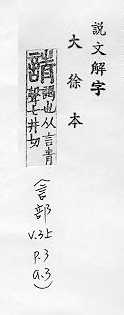 說文解字
大徐本
請
謁也从言青
聲七井切
(言部
V.3上
P.3
a.3)